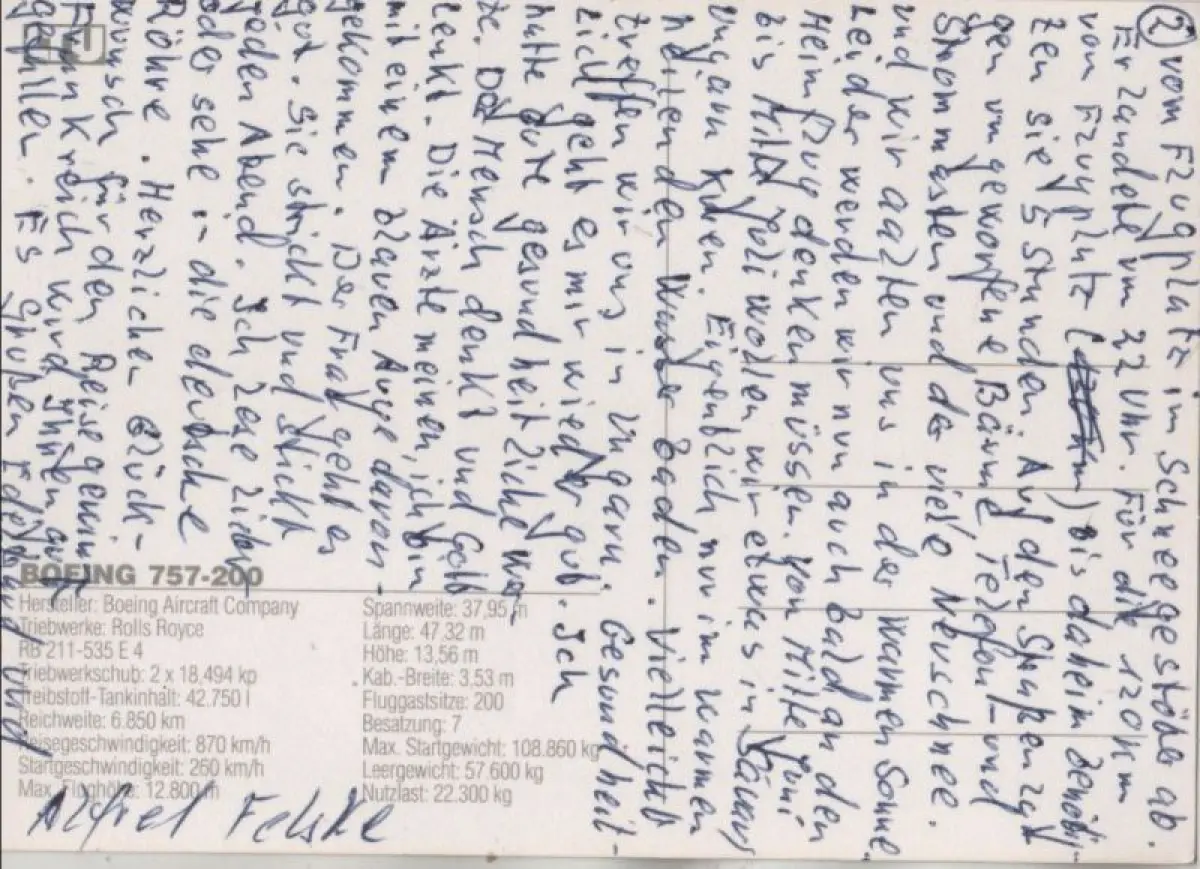 ② vom Flugplatz in Schneegestöber ab.
Er landete um 22 Uhr. Für die 120 km
vom Flugplatz bis daheim benöti-
ten sie 5 Stunden. Auf den Straßen lag
gen umgeworfene Bäume, Telefon- und
Strommasten und der viele Neuschnee.
und wir aalten uns in der warmen Sonne.
Leider werden wir nun auch bald an den
Heimflug denken müssen. Von Mitte Juni
bis Mitte Juli wollen wir etwas in Sárvár
Ungarn kuren. Eigentlich nur im warmen
heilenden Wasser baden. Vielleicht
treffen wir uns in Ungarn. Gesundheit-
lich geht es mir wieder gut. Ich
hatte gute gesundheitliche Wer-
te. Der Mensch denkt und Gott
lenkt. Die Ärzte meinen, ich bin
mit einem blauen Auge davon-
gekommen. Der Frau geht es
gut. Sie strickt und stickt
jeden Abend. Ich lese lieber
oder sehe in die deutsche
Röhre. Herzlichen Glück-
wunsch für den Reisegewinn
Frankreich wird Ihnen gut
gefallen. Es grüßen Edeltraud und
Alfred Felske
BOEING 757-200
Hersteller: Boeing Aircraft Company
Triebwerke: Rolls Royce
RB 211-535 E 4
Triebwerkschub: 2 x 18.494 kp
Treibstoff-Tankinhalt: 42.750 l
Reichweite: 6.850 km
Reisegeschwindigkeit: 870 km/h
Startgeschwindigkeit: 260 km/h
Max. Flughöhe: 12.800 m
Spannweite: 37,95 m
Länge: 47,32 m
Höhe: 13,56 m
Kab.-Breite: 3,53 m
Fluggastsitze: 200
Besatzung: 7
Max. Startgewicht: 108.860 kg
Leergewicht: 57.600 kg
Nutzlast: 22.300 kg